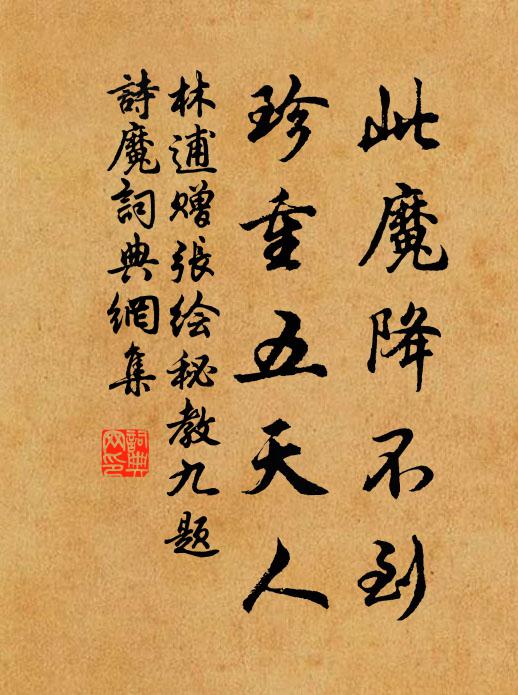 此魔降不到
珍重五天人
林逋赠張绘秘教九题
詩魔詞典網集
詞典
网印